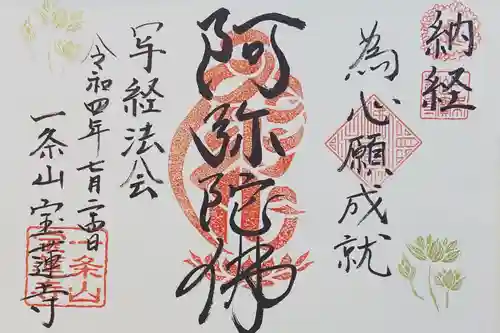 納経
為心願成就
阿弥陀佛
写経法会
令和四年七月二四日
一条山宝蓮寺
一条山